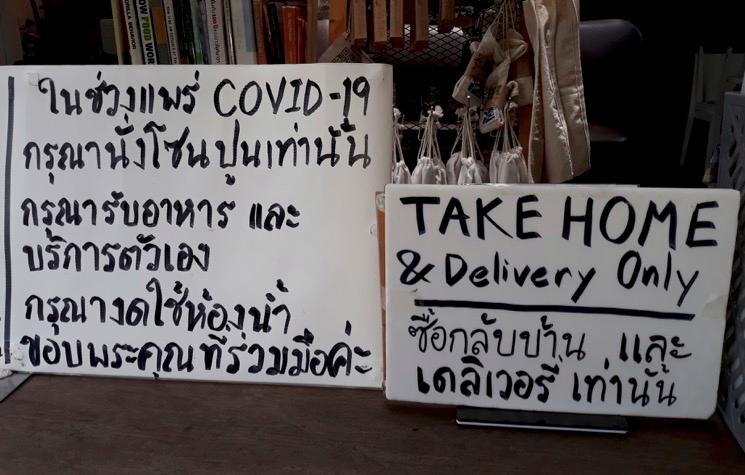 ในช่วงแพร่ COVID-19
กรุณานั่งโซนปูนเท่านั้น
กรุณารับอาหาร และ
บริการตัวเอง
กรุณางดใช้ห้องน้ำ
ขอบพระคุณที่ร่วมมือค่ะ
TAKE HOME
& Delivery Only
ซื้อกลับบ้าน และ
เดลิเวอรี่ เท่านั้น